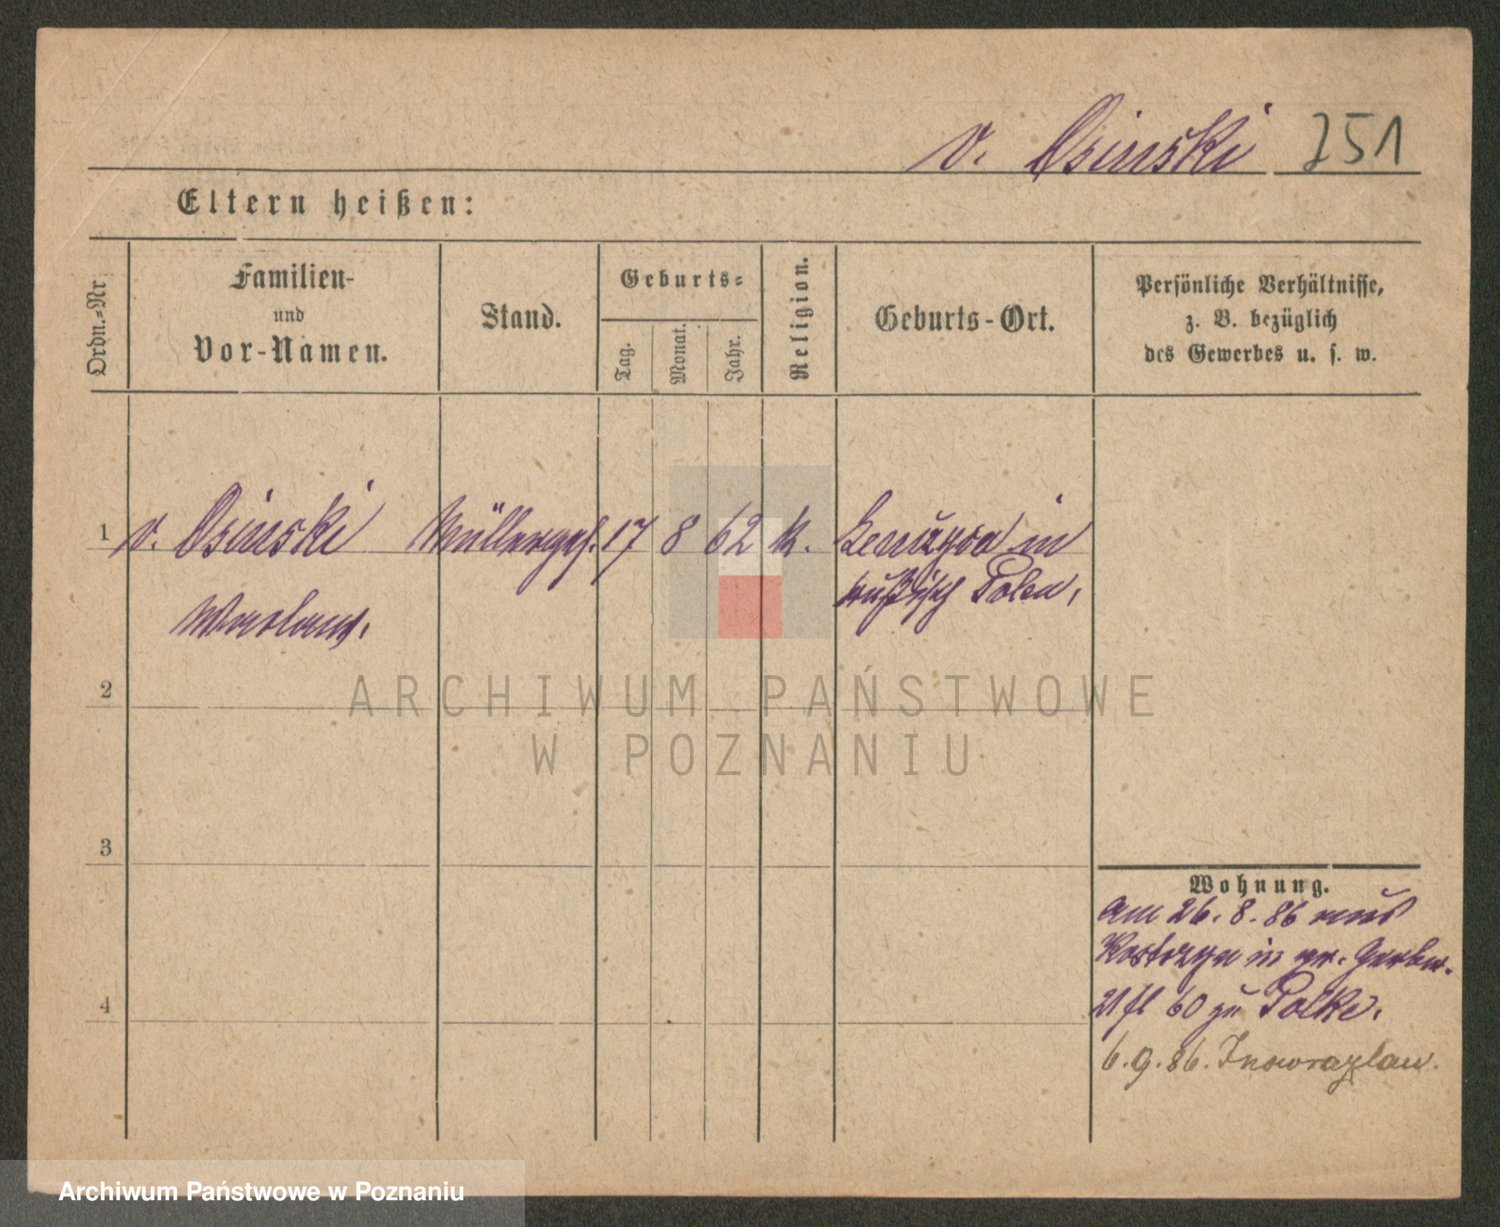 v. Osinski 251
Eltern heißen:
Ordn.=Nr
Familien-
und
Vor-Namen.
Stand.
Geburts=
Tag.
Monat.
Jahr.
Religion.
Geburts-Ort.
Persönliche Verhältnisse,
z. B. bezüglich
des Gewerbes u. s. w.
1 v. Osinski Müllerges. 17 8 62 k. in
russisch Polen,
ARCHIWUM PAŃSTWOWE
W POZNANIU
2
3
Wohnung.
am 26. 8. 86 aus
Kostrzyn in gr. Gerber-
4
60 zu Polke.
6.9.86. Inowrazlaw.
Archiwum Państwowe w Poznaniu